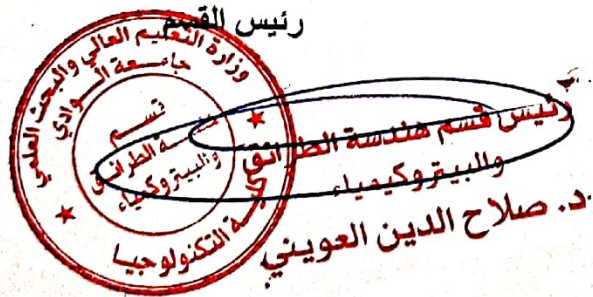 رئيس القسم
وزارة التعليم العالي والبحث العلمي
جامعة الوادي
كلية التكنولوجيا
قسم
هندسة الطرائق
والبيتروكيمياء
رئيس قسم هندسة الطرائق
والبيتروكيمياء
د. صلاح الدين العويني